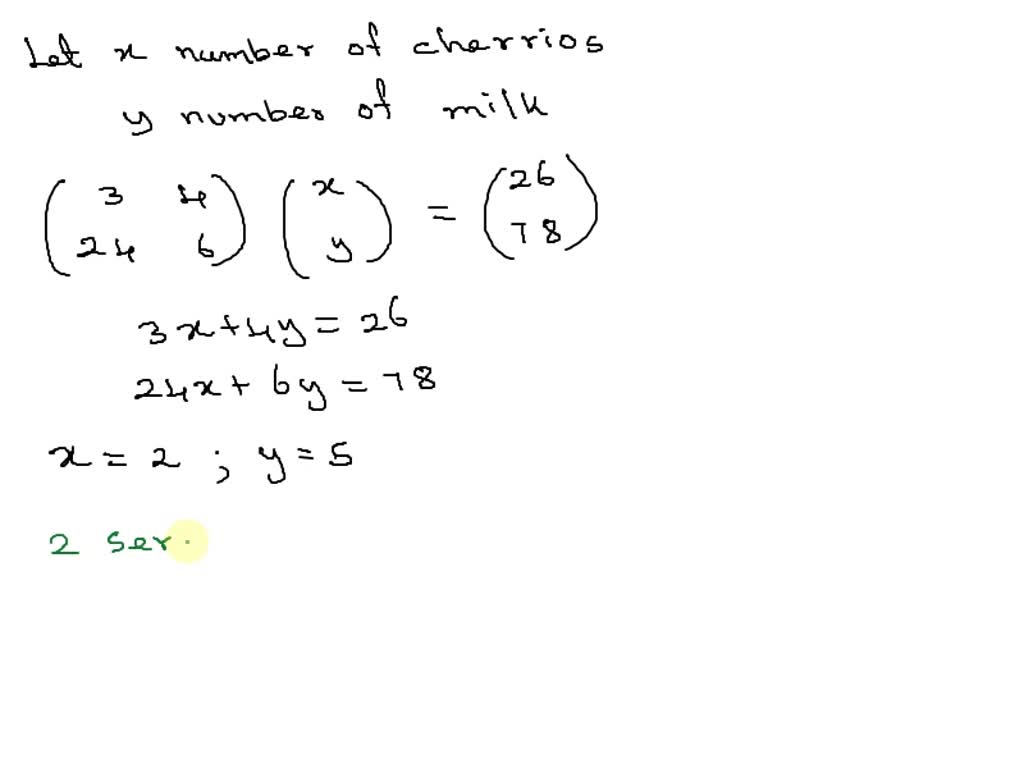 Let x number of cherrios
y number of milk
(3 4
24 6) (x
y) = (26
78)
3x+4y=26
24x+6y=78
x=2 ; y=5
2 ser